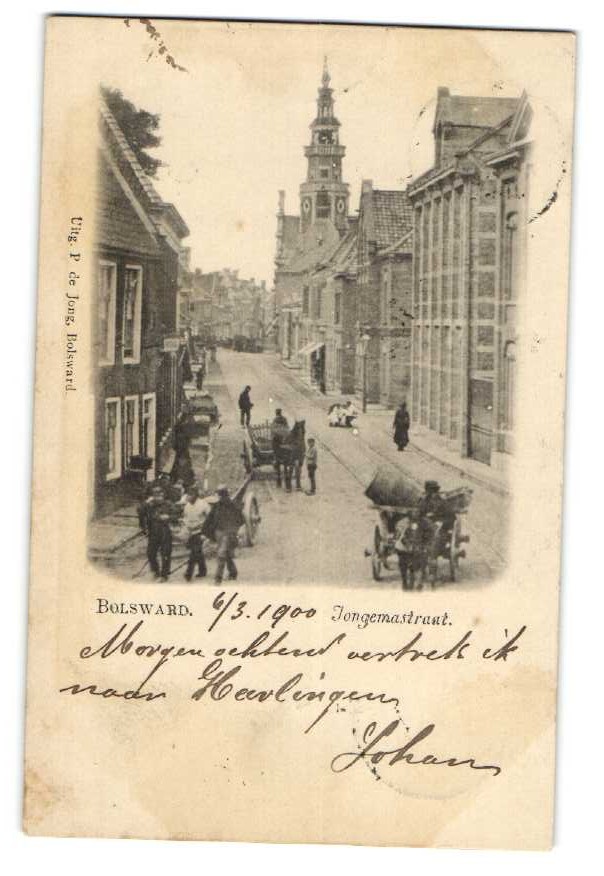 Uitg. P de Jong, Bolsward.
BOLSWARD. 6/3.1900 Jongemastraat.
Morgen ochtend vertrek ik
naar Harlingen
Johan